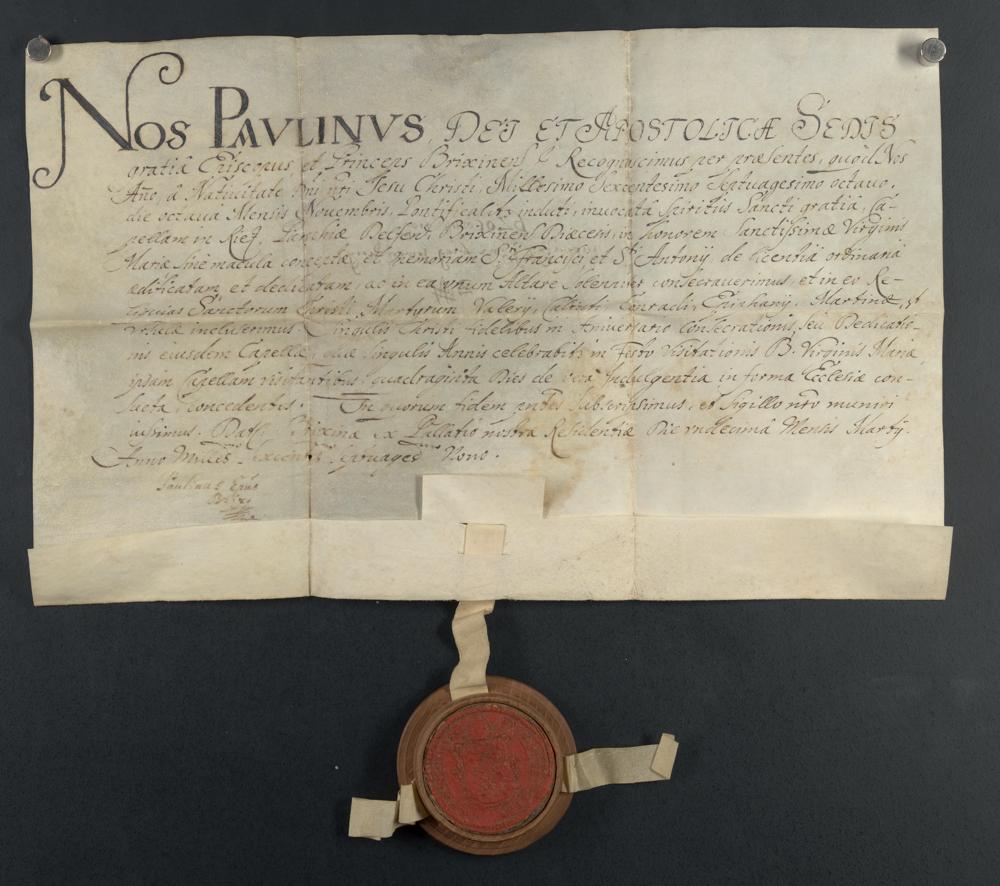 NOS PAVLINVS, DEI ET APOSTOLICÆ SEDIS
gratiâ Episcopus et Princeps Brixinens̃ &c Recognoscimus per præsentes, quòd Nos
Año, à Natiuitate Dñi nri Jesu Christi, Millesimo Sexcentesimo Septuagesimo octauo,
die octaua Mensis Novembris, Pontificalib9 induti, inuocatâ Spiritûs Sancti gratiâ, Ca-
pellam in Rieẓ, Parochiæ Brixinens̃ Diœcesis, in honorem Sanctissimæ Virginis
Mariæ sine macula conceptæ, et memoriam S. Francisci et S. Antonij de licentia ordinaria
ædificatam et dedicatam, ac in ea vnum Altare Solenniter consecrauerimus, et in eo Re-
liquias Sanctorum Christi Martyrum Valerij, Conradi, Martinæ, et
incluserimus. Singulis Christi fidelibus in Aniuersario Consecrationis, seu Dedicatio-
nis eiusdem Capellæ, quæ singulis Annis celebrabitr in Festo Visitationis B. Virginis Mariæ,
ipsam Capellam visitantibus, quadraginta Dies de vera Indulgentia in forma Ecclesiæ con-
sueta concedentes. In quorum fidem pñtes subscripsimus, et Sigillo nro muniri
iussimus. Dat. Brixinæ ex Pallatio nostræ Residentiæ Die vndecimâ Mensis Martij
Anno Milles Sexcentes Septuages Nono.
Paulinus Epũs
Brixs